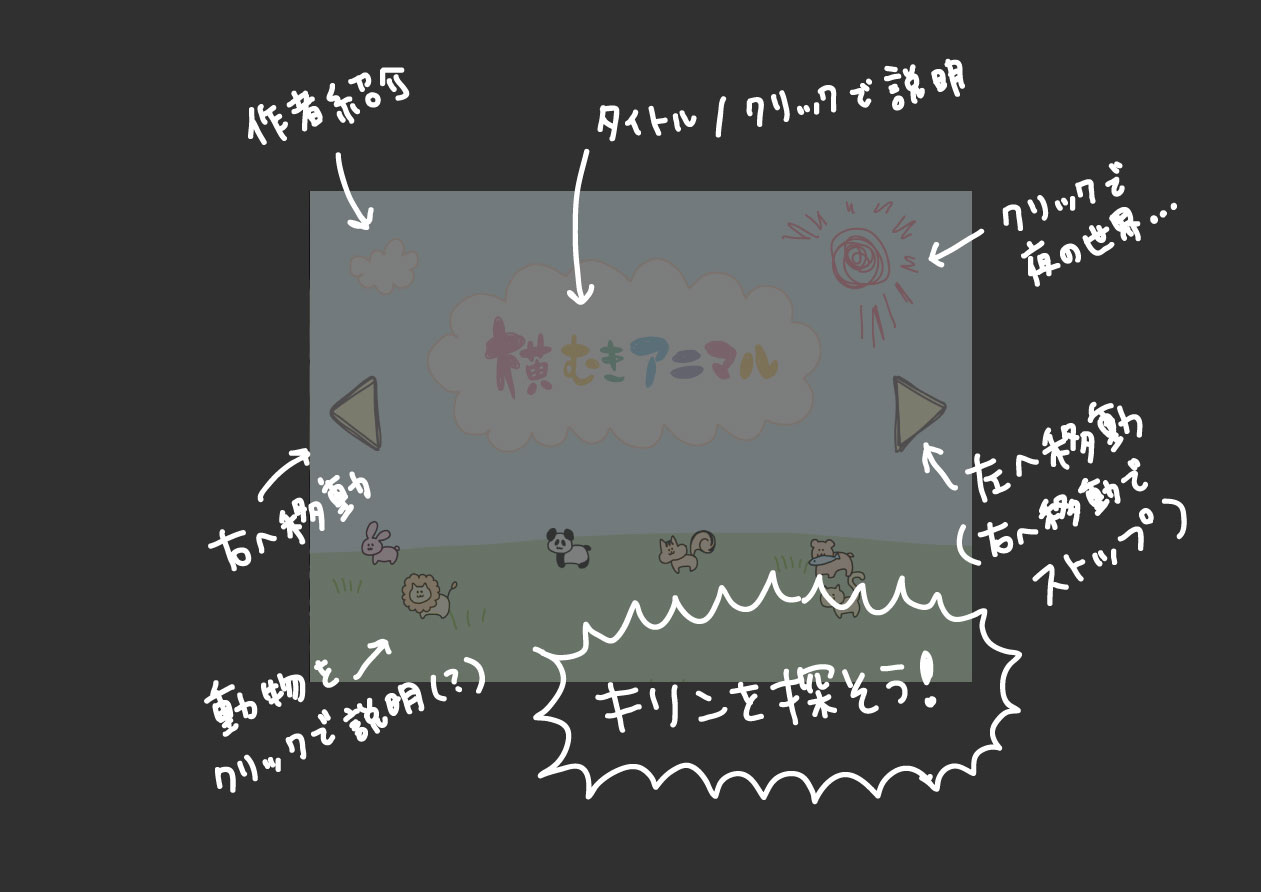 作者紹介
タイトル / クリックで説明
クリックで
夜の世界...
横むきアニマル
右へ移動
左へ移動
(右へ移動で
ストップ)
動物を
クリックで説明(?)
キリンを探そう!